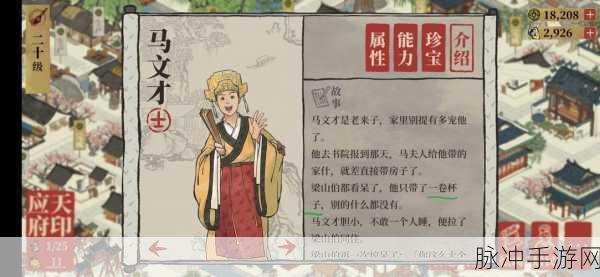 二十级
马文才
士
属性
能力
珍宝
介绍
18,208
2,926
故事
马文才是老来子，家里别提有多宠他
了。
他去书院报到那天，马夫人给他带的
家什，就差直接带房子了。
梁山伯都看呆了，他只带了一卷杯
子，别的什么都没有。
马文才胆小，不敢一个人睡，便拉了
梁山伯同住。
应天府印
1/25
11
脉冲手游网